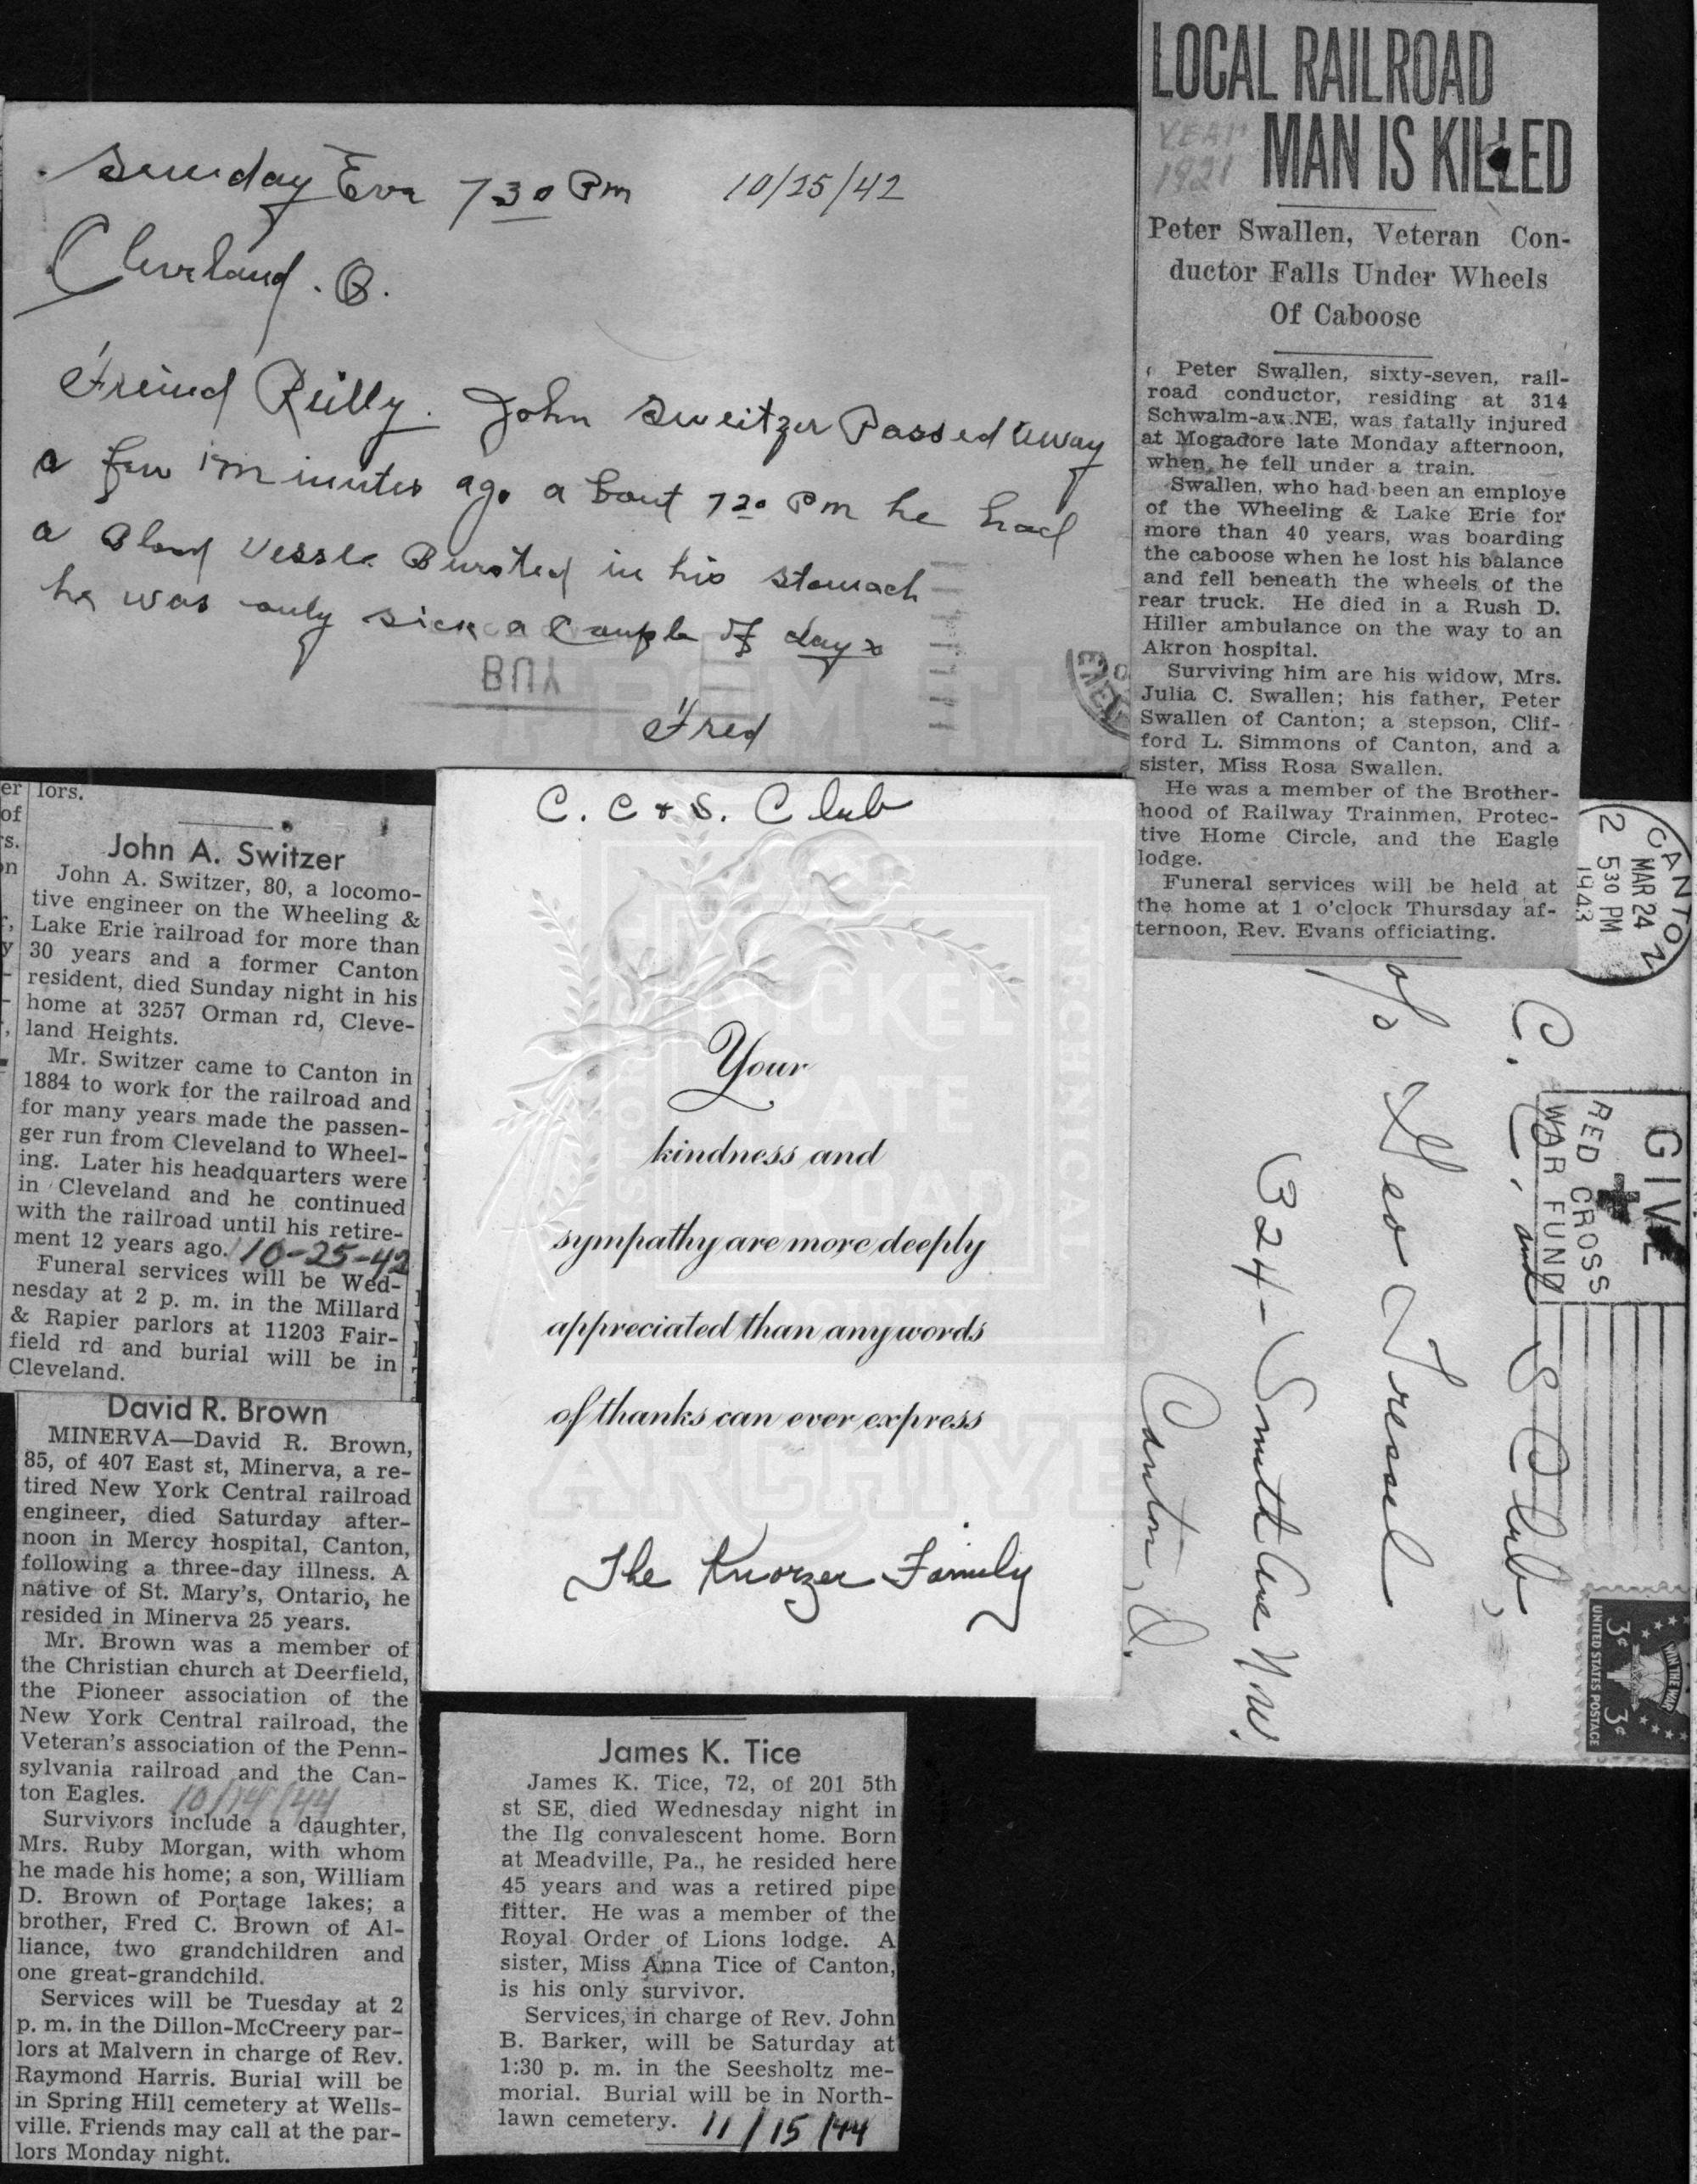 Sunday Eve 7 30 Pm 10/25/42
Cleveland. O.
Freind Reilly. John Sweitzer Passed away
a few minutes ago about 7 20 Pm he had
a Blood Vessle Bursted in his stomach
he was only sick a couple of days
BUY
Fred
LOCAL RAILROAD
MAN IS KILLED
YEAR
1921
Peter Swallen, Veteran Con-
ductor Falls Under Wheels
Of Caboose
Peter Swallen, sixty-seven, rail-
road conductor, residing at 314
Schwalm-av NE, was fatally injured
at Mogadore late Monday afternoon,
when he fell under a train.
Swallen, who had been an employe
of the Wheeling & Lake Erie for
more than 40 years, was boarding
the caboose when he lost his balance
and fell beneath the wheels of the
rear truck. He died in a Rush D.
Hiller ambulance on the way to an
Akron hospital.
Surviving him are his widow, Mrs.
Julia C. Swallen; his father, Peter
Swallen of Canton; a stepson, Clif-
ford L. Simmons of Canton, and a
sister, Miss Rosa Swallen.
He was a member of the Brother-
hood of Railway Trainmen, Protec-
tive Home Circle, and the Eagle
lodge.
Funeral services will be held at
the home at 1 o'clock Thursday af-
ternoon, Rev. Evans officiating.
lors.
John A. Switzer
John A. Switzer, 80, a locomo-
tive engineer on the Wheeling &
Lake Erie railroad for more than
30 years and a former Canton
resident, died Sunday night in his
home at 3257 Orman rd, Cleve-
land Heights.
Mr. Switzer came to Canton in
1884 to work for the railroad and
for many years made the passen-
ger run from Cleveland to Wheel-
ing. Later his headquarters were
in Cleveland and he continued
with the railroad until his retire-
ment 12 years ago. 10-25-42
Funeral services will be Wed-
nesday at 2 p. m. in the Millard
& Rapier parlors at 11203 Fair-
field rd and burial will be in
Cleveland.
David R. Brown
MINERVA—David R. Brown,
85, of 407 East st, Minerva, a re-
tired New York Central railroad
engineer, died Saturday after-
noon in Mercy hospital, Canton,
following a three-day illness. A
native of St. Mary's, Ontario, he
resided in Minerva 25 years.
Mr. Brown was a member of
the Christian church at Deerfield,
the Pioneer association of the
New York Central railroad, the
Veteran's association of the Penn-
sylvania railroad and the Can-
ton Eagles. 10/14/44
Survivors include a daughter,
Mrs. Ruby Morgan, with whom
he made his home; a son, William
D. Brown of Portage lakes; a
brother, Fred C. Brown of Al-
liance, two grandchildren and
one great-grandchild.
Services will be Tuesday at 2
p. m. in the Dillon-McCreery par-
lors at Malvern in charge of Rev.
Raymond Harris. Burial will be
in Spring Hill cemetery at Wells-
ville. Friends may call at the par-
lors Monday night.
C. C & S. Club
Your
kindness and
sympathy are more deeply
appreciated than any words
of thanks can ever express
The Knorzer Family
James K. Tice
James K. Tice, 72, of 201 5th
st SE, died Wednesday night in
the Ilg convalescent home. Born
at Meadville, Pa., he resided here
45 years and was a retired pipe
fitter. He was a member of the
Royal Order of Lions lodge. A
sister, Miss Anna Tice of Canton,
is his only survivor.
Services, in charge of Rev. John
B. Barker, will be Saturday at
1:30 p. m. in the Seesholtz me-
morial. Burial will be in North-
lawn cemetery. 11/15/44
CANTON
MAR 24
5 30 PM
1943
2
GIVE
RED CROSS
WAR FUND
WIN THE WAR
3¢ 3¢
UNITED STATES POSTAGE
C. C. and S Club,
c/o Geo Tressel
324 - Smith Ave N.W.
Canton, O.
FROM THE
NICKEL PLATE ROAD
HISTORICAL & TECHNICAL
SOCIETY
ARCHIVES